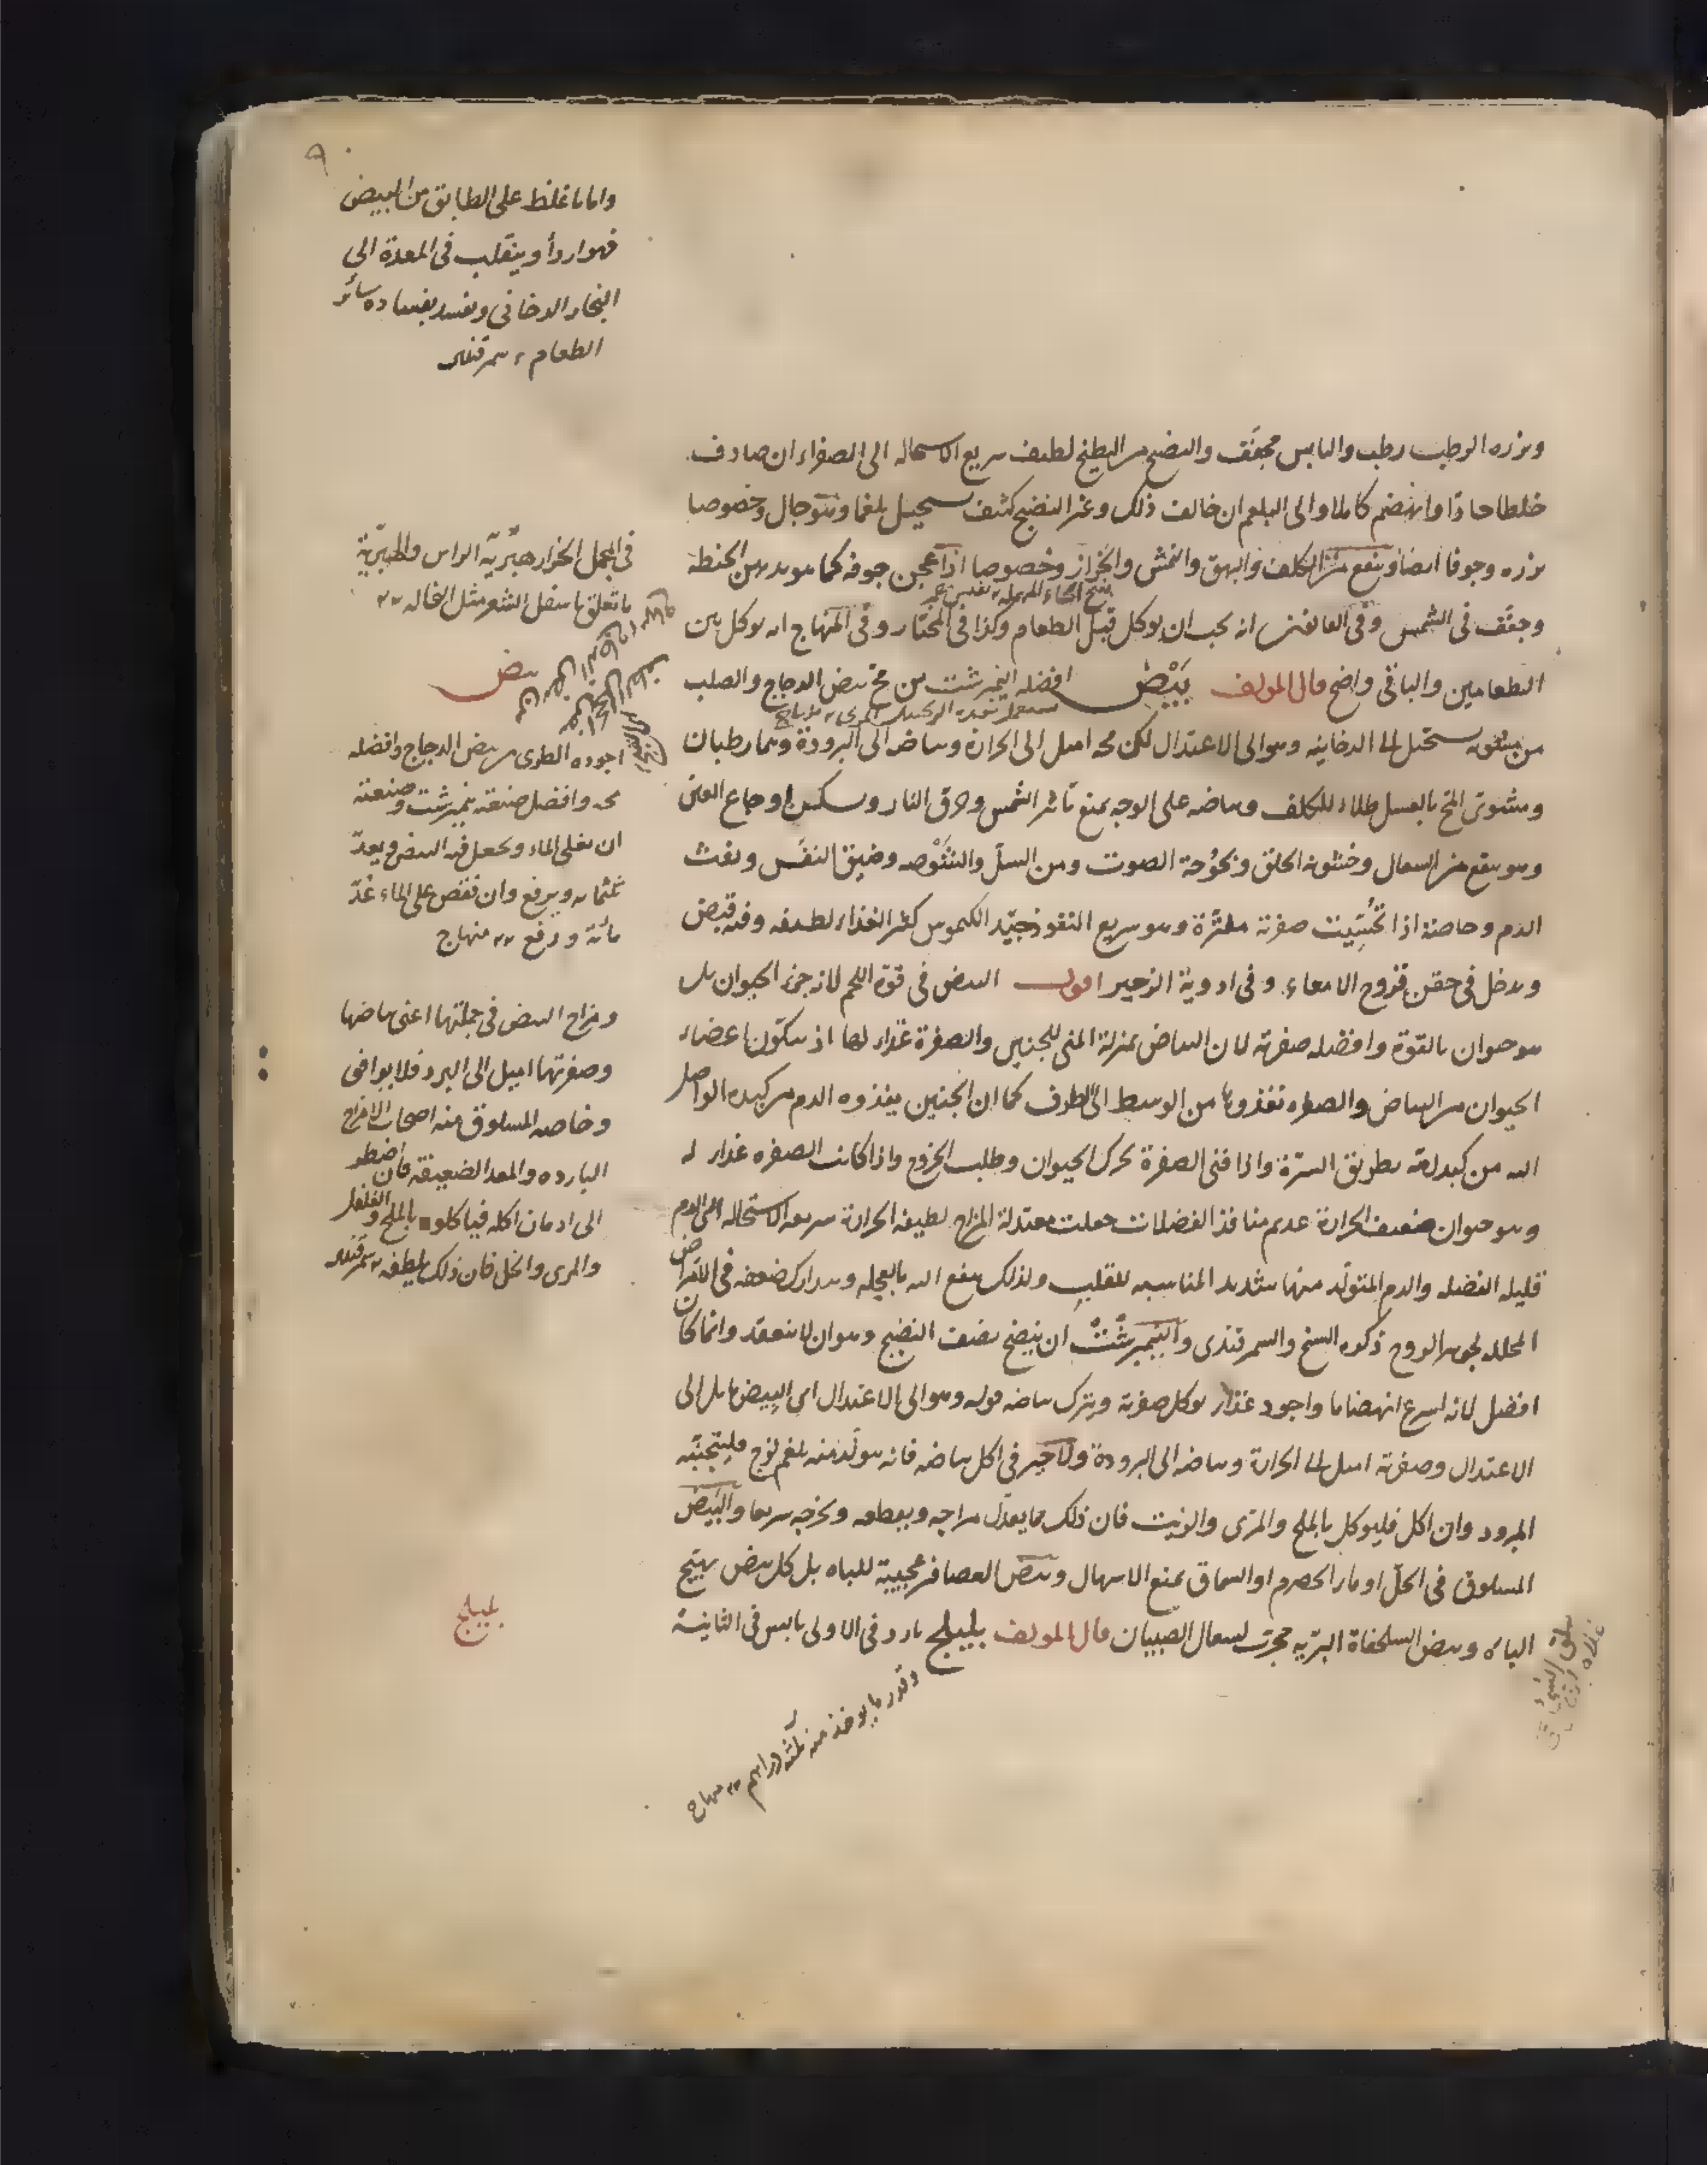 واما ما غلظ على الطابق من البيض
فهو اردأ وينقلب فى المعدة الى
البخار الدخانى ويفسد بفساده سائر
الطعام سمرقندى
وبزره الرطب رطب واليابس مجفف والنضيج من البطيخ لطيف سريع الاستحالة الى الصفراء ان صادف
خلطا حادا وانهضم كاملا والى البلغم ان خالف ذلك وغير النضيج كثيف يستحيل بلغما وخصوصا
بزره وجوفا ايضا وينفع من الكلف والبهق والنمش والحزاز وخصوصا اذا عجن جوفه كما هو بدقيق الحنطة
وجفف فى الشمس وفى انه يجب ان يوكل قبل الطعام وكذا فى المختار وفى المنهاج انه يوكل بين
الطعامين والباقى واضح قال المولف بَيْض افضله النيمبرشت من مح بيض الدجاج والصلب
من يستحيل الى الدخانية وهو الى الاعتدال لكن محه اميل الى الحرارة وبياضه الى البرودة وهما رطبان
ومشوى المح بالعسل طلاء للكلف وبياضه على الوجه يمنع تاثير الشمس وحرق النار ويسكن اوجاع العين
وهو ينفع من السعال وخشونة الحلق وبحوحة الصوت ومن السل والشوصه وضيق النفس ونفث
الدم وخاصة اذا تحسيت صفرته مفترة وهو سريع النفوذ جيد الكيموس كثير الغذاء لطيفه وفيه قبض
ويدخل فى حقن قروح الامعاء وفى ادوية الزحير اقول البيض فى قوة اللحم لانه جزء الحيوان بل
هو حيوان بالقوة وافضله صفرته لان البياض بمنزلة المنى للجنين والصفرة غذاء لها اذ يتكون اعضاء
الحيوان من البياض والصفره تغذوها من الوسط الى الطرف كما ان الجنين يغذوه الدم من كبده الواصل
اليه من كبد امه بطريق السرة واذا فنى الصفرة تحرك الحيوان وطلب الخروج واذا كانت الصفره غذاء له
وهو حيوان ضعيف الحرارة عديم منافذ الفضلات جعلت معتدلة المزاج لطيفة الحرارة سريعة الاستحالة الى الدم
قليلة الفضله والدم المتولد منها شديد المناسبه للقلب ولذلك ينفع اليه بالعجله ويتدارك ضعفه فى الامراض
المحلله لجوهر الروح ذكره الشيخ والسمرقندى والنيمبرشت ان ينضج نصف النضج وهو ان لا ينعقد وانما كان
افضل لانه اسرع انهضاما واجود غذاء يوكل صفرته ويترك بياضه قوله وهو الى الاعتدال اى البيض مايل الى
الاعتدال وصفرته اميل الى الحرارة وبياضه الى البرودة ولا خير فى اكل بياضه فانه يتولد منه بلغم لزج فليتجنبه
المبرود وان اكل فليوكل بالملح والمرى والزيت فان ذلك مما يعدل مزاجه ويقطعه ويخرجه سريعا والبيض
المسلوق فى الخل او ماء الحصرم او السماق يمنع الاسهال وبيض العصافير عجيبة للباه بل كل بيض يهيج
الباه وبيض السلحفاة البرية مجرب لسعال الصبيان قال المولف بليلج بارد فى الاولى يابس فى الثانية
وقدر ما يوخذ منه ثلثة دراهم منهاج
فى المجمل الحزاز هبرية الراس والهبرية
ما تعلق باسفل الشعر مثل النخاله
بيض
اجوده الطرى من بيض الدجاج وافضله
محه وافضل صنعته نيمبرشت وصنعته
ان يغلى الماء ويجعل فيه البيض ويعد
ثلثمايه ويرفع وان فقص على الماء عُدّ
مائة ورفع منهاج
ومزاج البيض فى جملتها اعنى بياضها
وصفرتها اميل الى البرد فلا يوافق
وخاصه المسلوق منه اصحاب الامزاج
البارده والمعد الضعيفة فان اضطر
الى ادمان اكله فياكلوه بالملح والفلفل
والمرى والخل فان ذلك يلطفه سمرقندى
بليلج